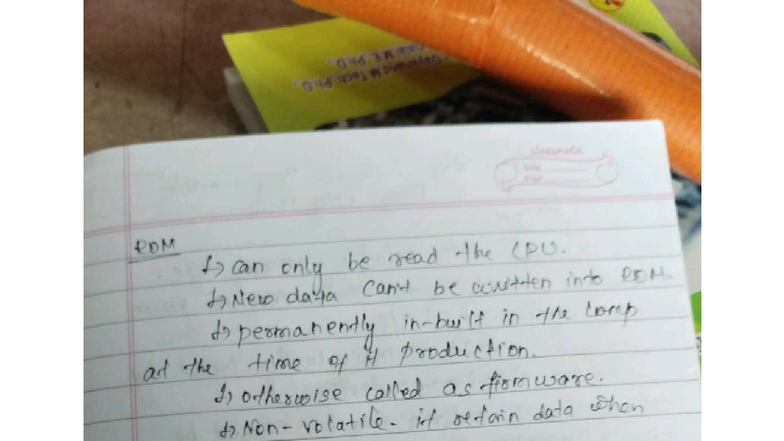 Dayanand M.Tech.,Ph.D.,
M.E.,Ph.D.,
classmate
Date
Page
ROM
↳ can only be read the CPU.
↳ New data can't be written into ROM.
↳ permanently in-built in the comp
at the time of it production.
↳ otherwise called as firmware.
↳ Non-volatile - it retain data when